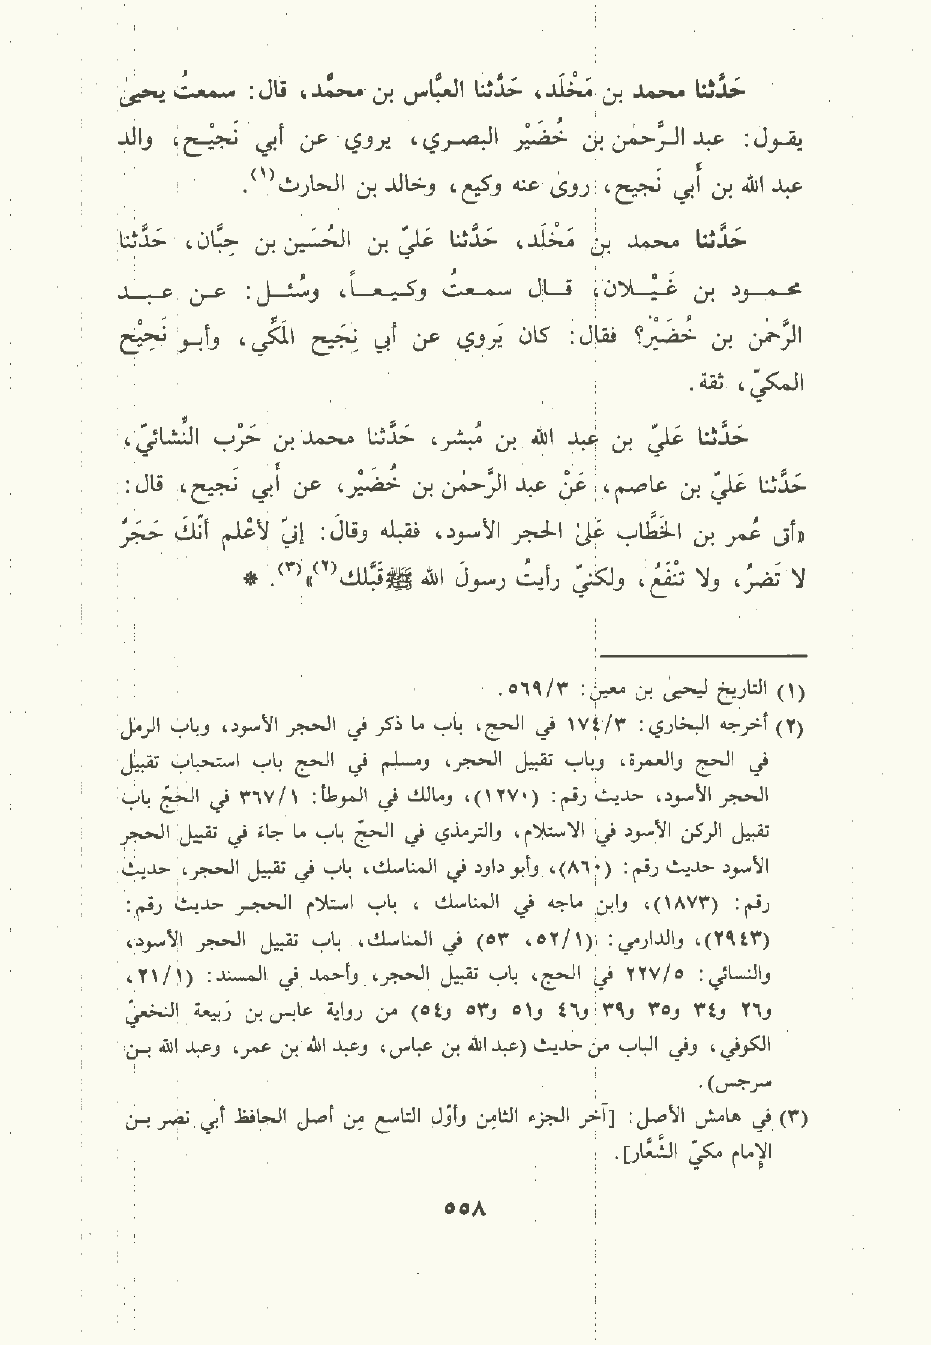 حَدَّثنا محمد بن مَخْلَد، حَدَّثنا العبَّاس بن محمَّد، قال: سمعتُ يحيىٰ
يقـول: عبد الـرَّحمٰن بن خُضَيْر البصـري، يروي عن أبي نَجِـيْـح، والد
عبد الله بن أبي نَجيح، روىٰ عنه وكيع، وخالد بن الحارث(١).
حَدَّثنا محمد بن مَخْلَد، حَدَّثنا عَليّ بن الحُسَين بن حِبَّان، حَدَّثنا
محمـود بن غَيْـلان، قـال سمعتُ وكيـعـاً، وسُئـل: عن عـبـد
الرَّحمٰن بن خُضَيْر؟ فقال: كان يَروي عن أبي نَجِيح المَكِّي، وأبـو نَجيْح
المكيّ، ثقة.
حَدَّثنا عَليّ بن عبد الله بن مُبشر، حَدَّثنا محمد بن حَرْب النَّشائيّ،
حَدَّثنا عَليّ بن عاصم، عَنْ عبد الرَّحمٰن بن خُضَيْر، عن أبي نَجيح، قال:
«أتى عمر بن الخَطَّاب عَلىٰ الحجر الأسود، فقبله وقالَ: إنيّ لأعْلم أنَّكَ حَجَرٌ
لا تَضرُ، ولا تنْفَعُ، ولكنيّ رأيتُ رسولَ الله ﷺ قَبَّلك(٢)»(٣). *
(١) التاريخ ليحيىٰ بن معين: ٥٦٩/٣.
(٢) أخرجه البخاري: ١٧٤/٣ في الحج، باب ما ذكر في الحجر الأسود، وباب الرمل
في الحج والعمرة، وباب تقبيل الحجر، ومسلم في الحج باب استحباب تقبيل
الحجر الأسود، حديث رقم: (١٢٧٠)، ومالك في الموطأ: ٣٦٧/١ في الحجّ باب
تقبيل الركن الأسود في الاستلام، والترمذي في الحجّ باب ما جاء في تقبيل الحجر
الأسود حديث رقم: (٨٦٠)، وأبو داود في المناسك، باب في تقبيل الحجر، حديث
رقم: (١٨٧٣)، وابن ماجه في المناسك ، باب استلام الحجـر حديث رقم:
(٢٩٤٣)، والدارمي: (٥٢/١، ٥٣) في المناسك، باب تقبيل الحجر الأسود،
والنسائي: ٢٢٧/٥ في الحج، باب تقبيل الحجر، وأحمد في المسند: (٢١/١،
و٢٦ و٣٤ و٣٥ و٣٩ و٤٦ و٥١ و٥٣ و٥٤) من رواية عابس بن رَبيعة النخعيّ
الكوفي، وفي الباب من حديث (عبد الله بن عباس، وعبد الله بن عمر، وعبد الله بـن
سرجس).
(٣) في هامش الأصل: [آخر الجزء الثامِن وأوّل التاسع مِن أصل الحافظ أبي نصر بـن
الإمام مكيّ الشَّعَّار].
٥٥٨